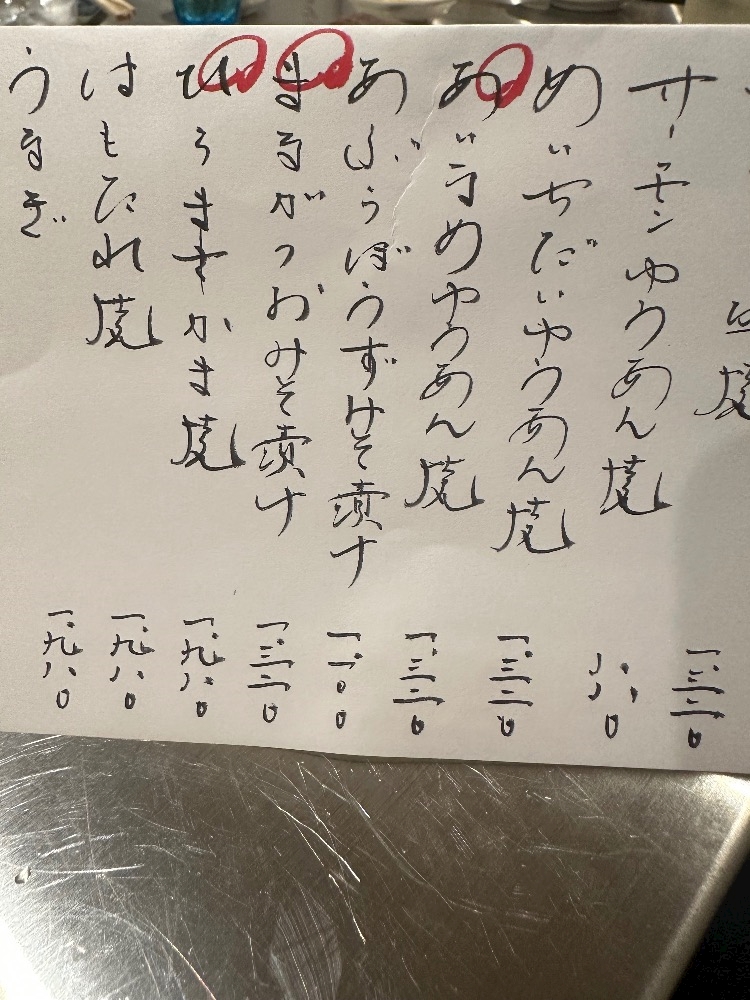 焼 一、三二〇
サーモンゆうあん焼 八八〇
めいちだいゆうあん焼 一、三二〇
あいなめゆうあん焼 一、三二〇
あぶらぼうずみそ漬け 一、一〇〇
まながつおみそ漬け 一、三二〇
ひらまさかま焼 一、九八〇
はもたれ焼 一、九八〇
うなぎ 一、九八〇